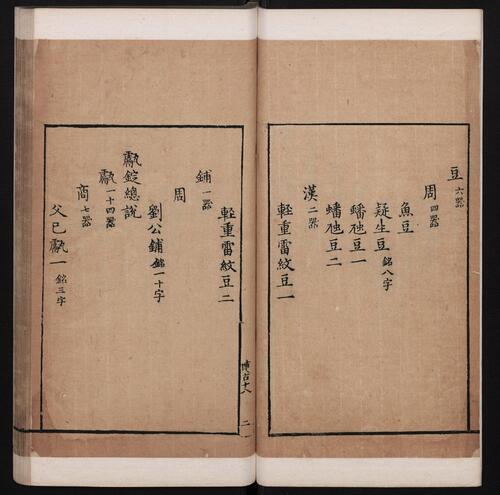 豆六器
周四器
魚豆
疑生豆銘八字
蟠虺豆一
蟠虺豆二
漢二器
輕重雷紋豆一
輕重雷紋豆二
鋪一器
周
劉公鋪銘一十字
甗錠總說
甗一十四器
商七器
父己甗一銘三字
博古十八
二